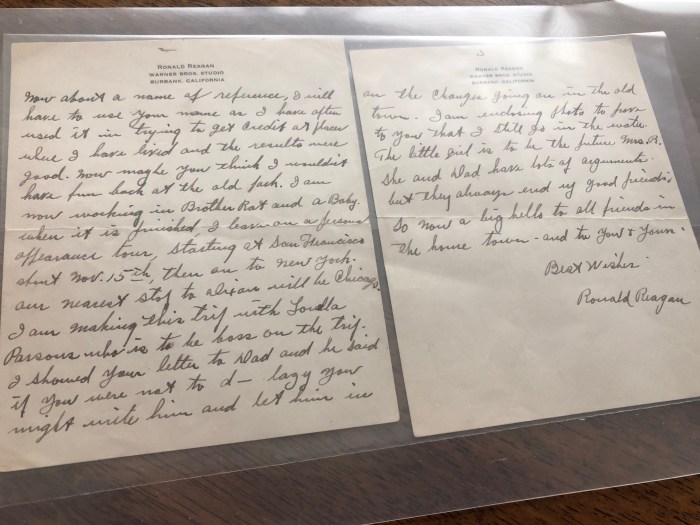 RONALD REAGAN
WARNER BROS. STUDIO
BURBANK, CALIFORNIA
Now about a name of reference, I will
have to use your name as I have often
used it in trying to get credit at places
where I have lived and the results were
good. Now maybe you think I wouldn't
have fun back at the old park. I am
now working in Brother Rat and a Baby.
When it is finished, I leave on a personal
appearance tour, starting at San Francisco
about Nov. 15th, then on to New York.
Our nearest stop to Dixon will be Chicago.
I am making this trip with Louella
Parsons who is to be boss on the trip.
I showed your letter to Dad and he said
if you were not to d— lazy you
might write him and let him in
3
RONALD REAGAN
WARNER BROS. STUDIO
BURBANK, CALIFORNIA
on the changes going on in the old
town. I am enclosing photo to prove
to you that I still go in the water.
The little girl is to be the future Mrs. R.
She and Dad have lots of arguments
but they always end up good friends.
So now a big hello to all friends in
the home town - and to You & Yours.
Best Wishes
Ronald Reagan